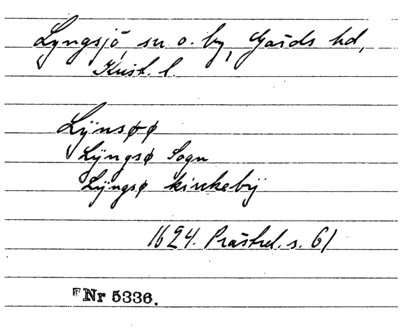 Lyngsjö, sn o. by, Gärds hd,
Krist. l.
Lÿnsøø
Lÿngsø Sogn
Lÿngsø kirckebÿ
1624. Prästrel. s. 61
Nr 5336.